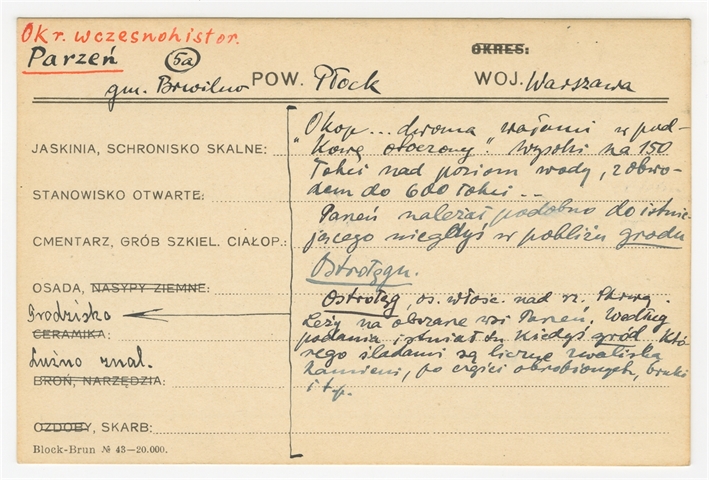 Okr. wczesnohistor.
Parzeń 5a OKRES:
gm. Brwilno POW. Płock WOJ. Warszawa
"Okop... dwoma wałami w pod-
JASKINIA, SCHRONISKO SKALNE: kowę otoczony" wysoki na 150
łokci nad poziom wody, z obwo-
STANOWISKO OTWARTE: dem do 600 łokci...
Parzeń należał podobno do istnie-
CMENTARZ, GRÓB SZKIEL. CIAŁOP.: jącego niegdyś w pobliżu grodu
Ostrołęgu.
OSADA, NASYPY ZIEMNE:
Grodzisko Ostrołęg, os. włośc. nad rz. Skrwą.
Leży na obszarze wsi Parzeń. Według
CERAMIKA: podania istniał tu kiedyś gród, któ-
Luźno znal. rego śladami są liczne zwaliska
BROŃ, NARZĘDZIA: kamieni, po części obrobionych, bruki
i t.p.
OZDOBY, SKARB:
Block-Brun № 43-20.000.